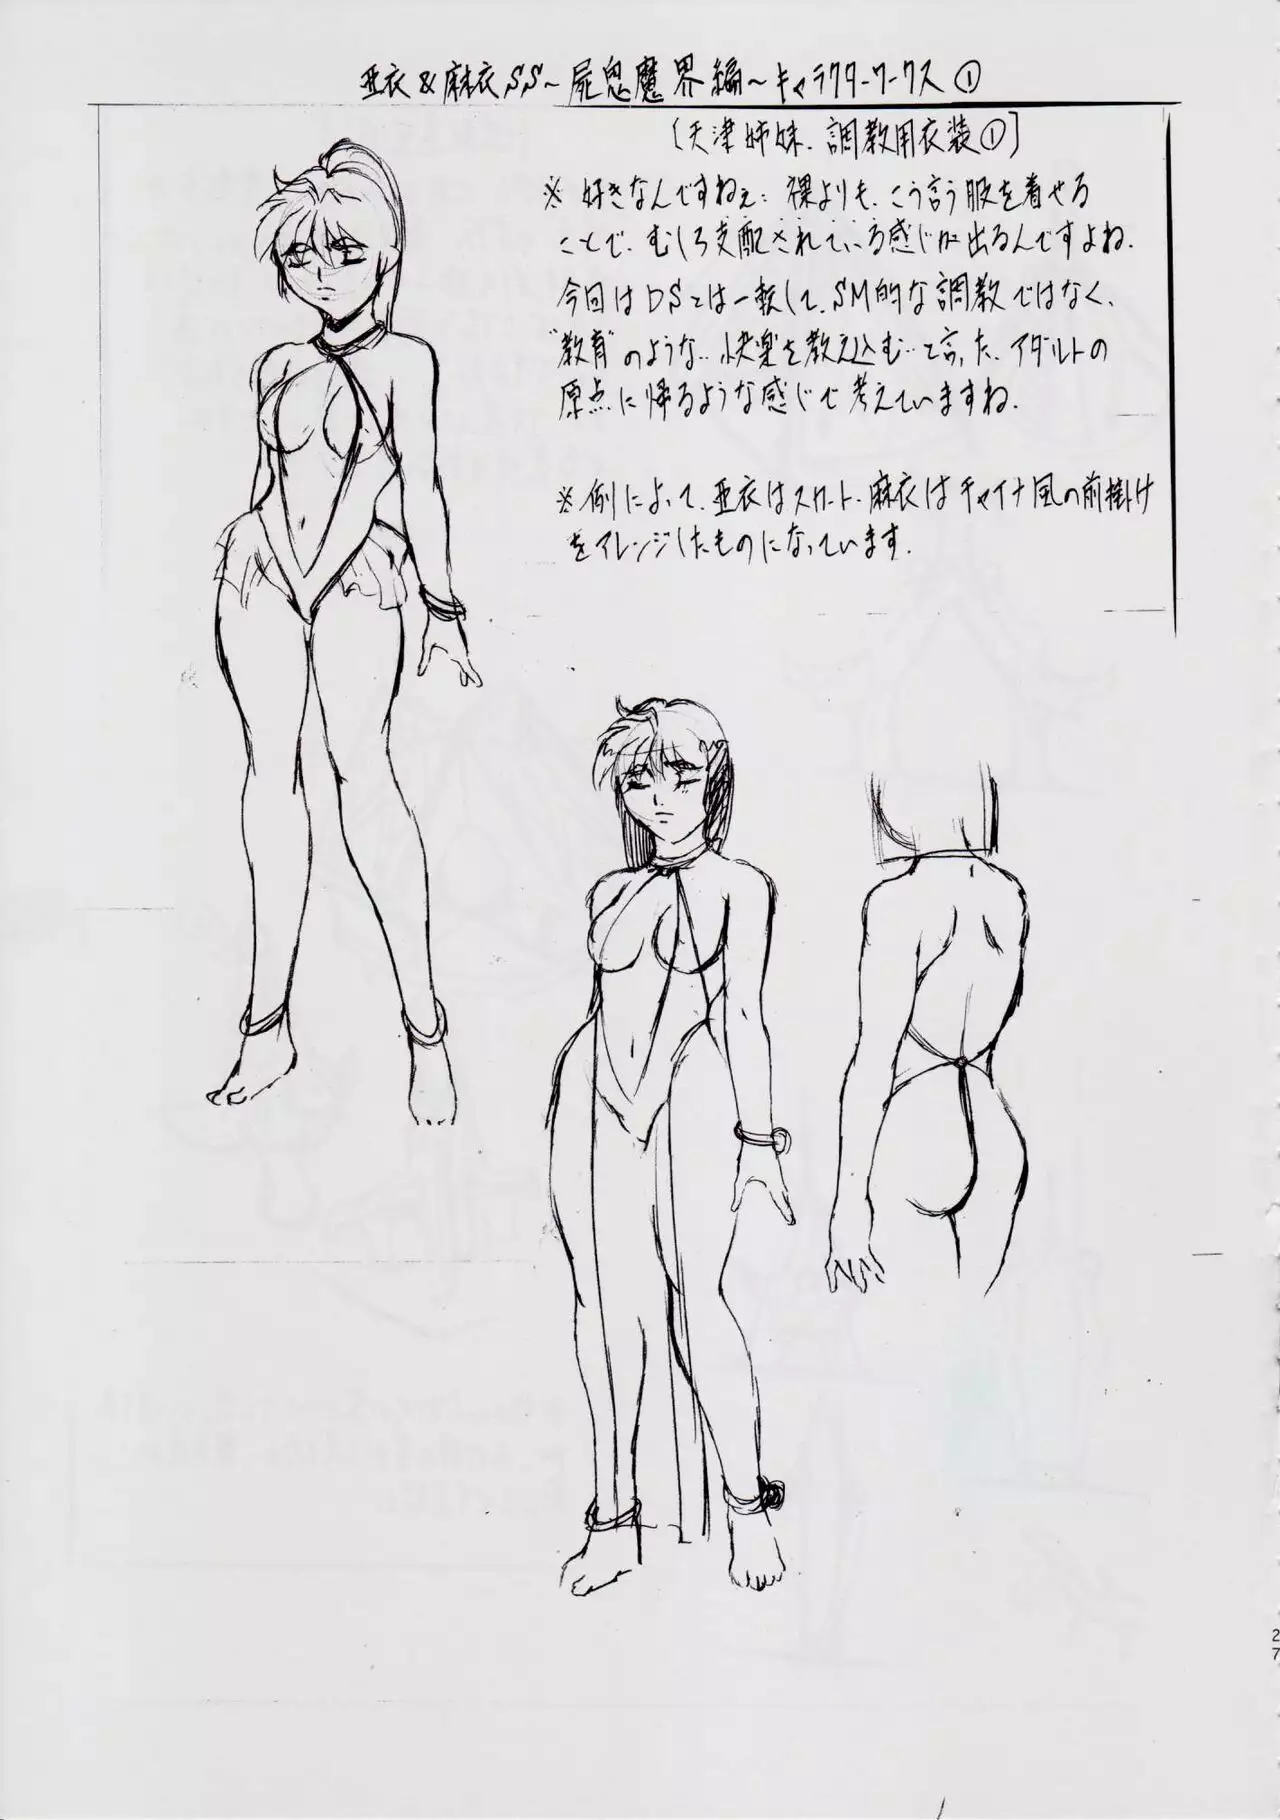 亜衣&麻衣SS~屍鬼魔界編~キャラクターワークス①
[天津姉妹.調教用衣装①]
※ 好きなんですねぇ… 裸よりも、こう言う服を着せる
ことで、むしろ支配されている感じが出るんですよね.
今回はDSとは一転して、SM的な調教ではなく、
"教育"のような…快楽を教え込む…と言った、アダルトの
原点に帰るような感じで考えていますね.
※例によって、亜衣はスカート.麻衣はチャイナ風の前掛け
をアレンジしたものになっています.
27